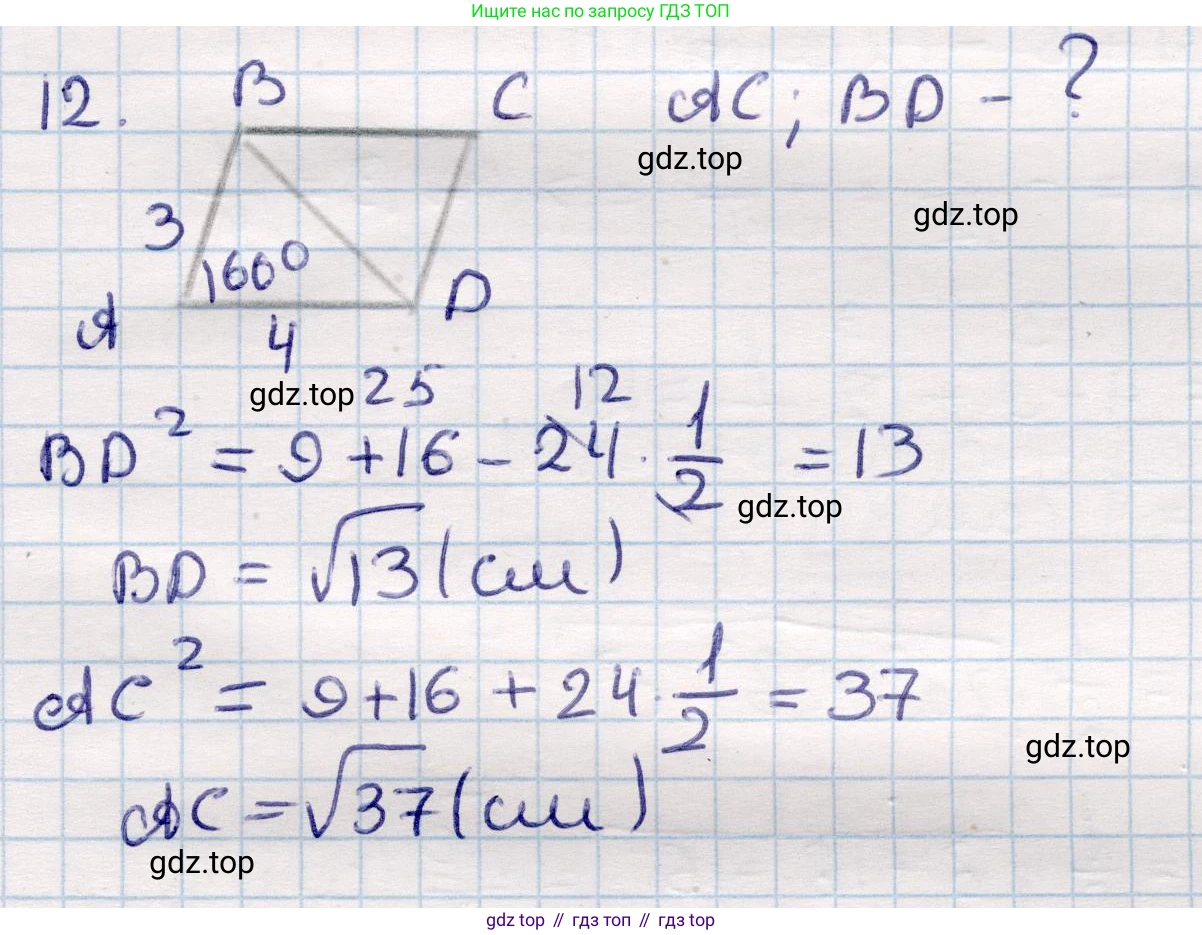 Ищите нас по запросу ГДЗ ТОП
12. B C AC; BD - ?
gdz.top
gdz.top
3
160°
A D
4
gdz.top 25 12
BD² = 9 + 16 - 24 · 1/2 = 13
gdz.top
BD = √13 (см)
AC² = 9 + 16 + 24 · 1/2 = 37
gdz.top
AC = √37 (см)
gdz.top
gdz top // гдз топ // гдз top